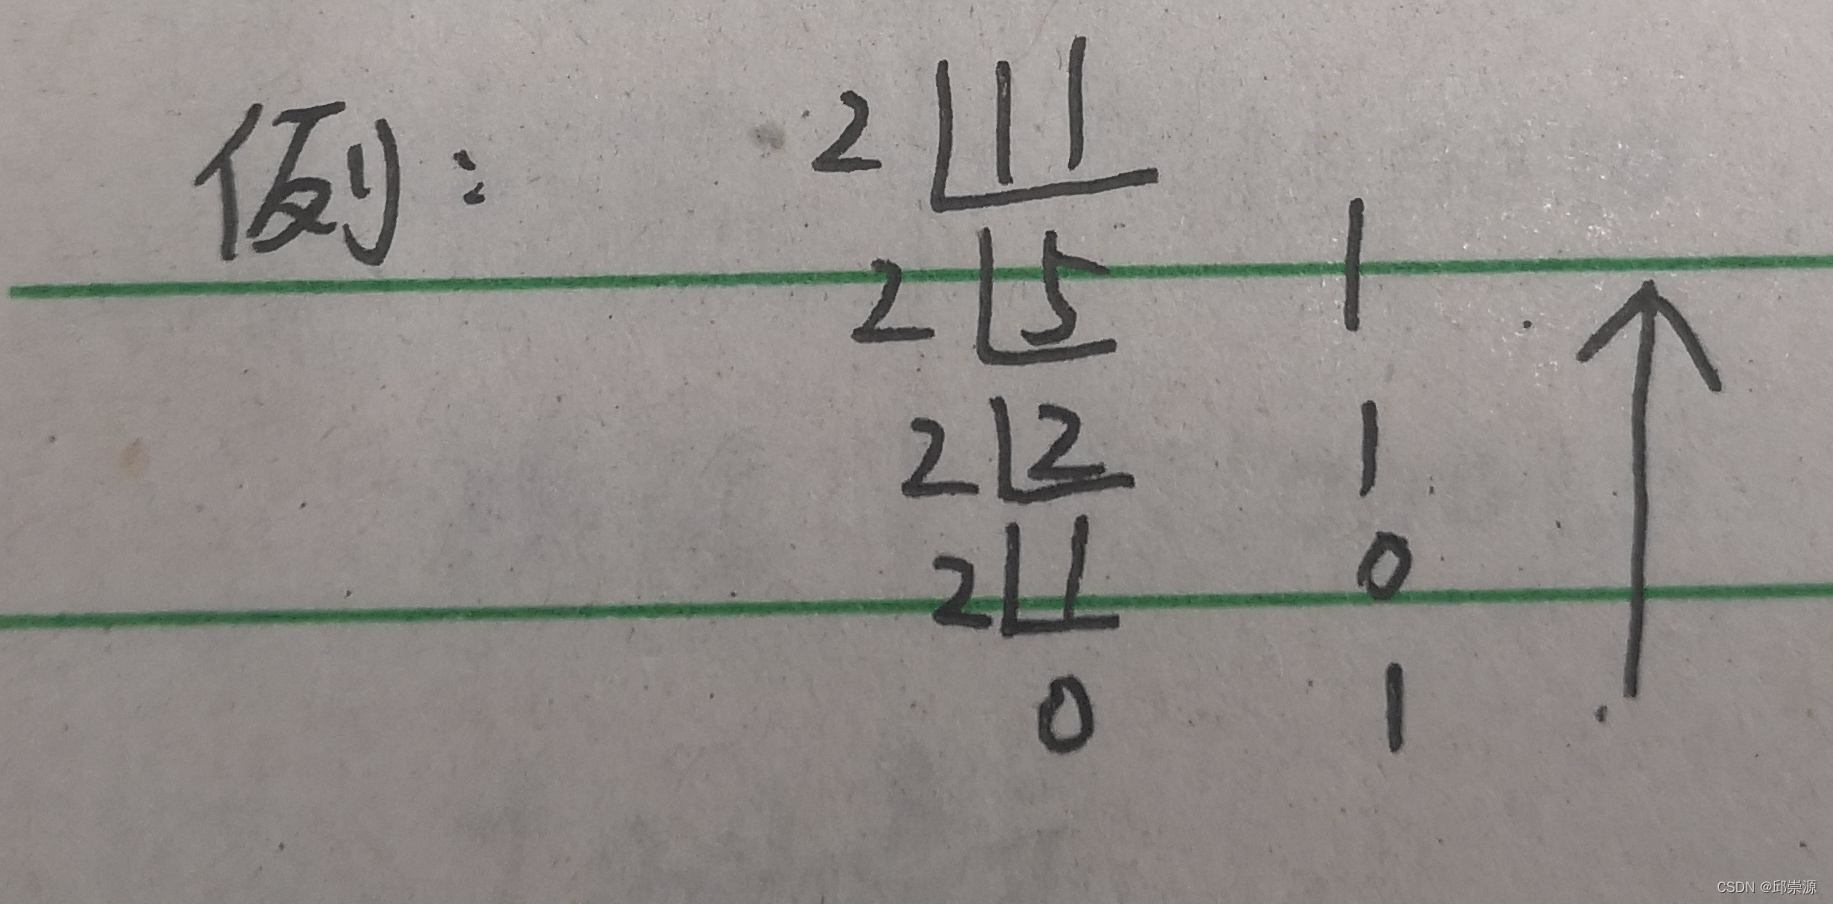 例: 2 11
2 5 1
2 2 1
2 1 0
0 1
CSDN @邱崇源